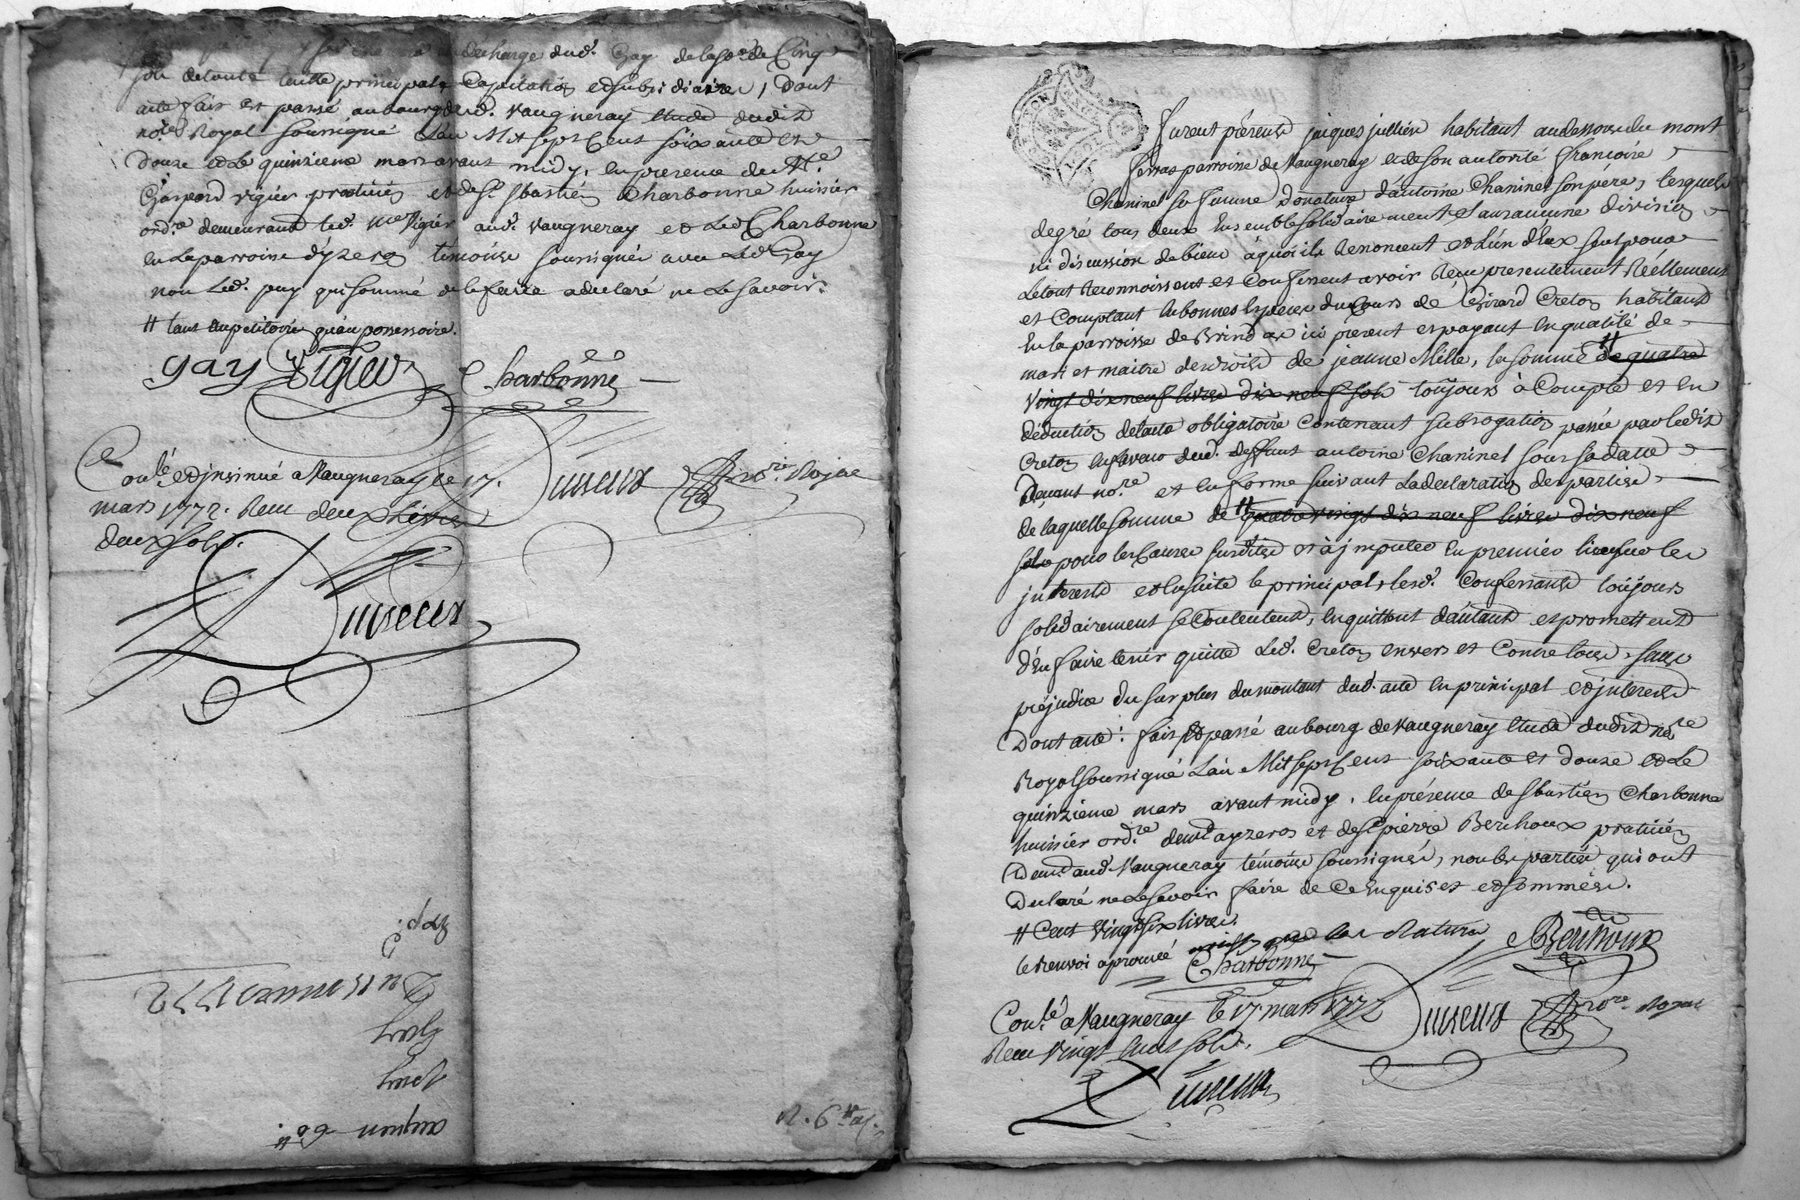 decharge dud. Gay de la so.e de Cinq
sols de toute taille principale Capitation et subsidiaire, Dont
acte fait et passé au bourg dud. Vaugneray Etude dudit
no.re Royal soussigné L'an Mil sept Cent soixante et
Douze et Le quinzieme mars avant midy, en presence de M.e
Gaspard vigier praticien et de S.r sbastien Charbonne huissier
ord.re demeurand led. M.e Vigier aud. Vaugneray et Led. Charbonne
en La parroisse d'yzeron temoins soussignés avec Led. Gay
non Led. puy qui sommé de le faire a declaré ne le savoir.
# tant au petitoire qu'au possessoire.
Gay Vigier Charbonne
Duvieux no.re Royal
Con.lé et insinué a Vaugneray le 17.
mars 1772. Reçu deux Livres
deux sols.
Duvieux
Furent présens jacques jullien habitant au dessous du mont
ferras parroisse de Vaugneray et de son autorité francoise
Chaninel sa femme Donataire d'antoine Chaninel son père, lesquels
de gré tous deux Ensemble solidairement et sans aucune division
ni discussion de biens à quoi ils Renoncent et L'un d'Eux seul pour
Le tout Reconnoissent et Confessent avoir Reçu presentement Réellement
et Comptant En bonnes Especes du Cours de Girard Creton habitant
En la parroisse de Brindas ici present et payant En qualité de
mari et maitre des droits de jeanne Mille, la somme # de quatre
Vingt dix neuf livres dix neuf sols toujours à Compte et en
déduction de l'acte obligatoire Contenant subrogation passée par ledit
Creton En faveur dud. deffunt antoine Chaninel sous sa datte
Devant no.re et En forme suivant La declaration des parties
de laquelle somme de # quatre vingt dix neuf livres dix neuf
sols pour les Causes susdites et à imputer En premier lieu sur les
interests et En suite le principal, lesd. Confessants toujours
solidairement se Contentent, En quittent d'autant et promettent
d'En faire tenir quitte Led. Creton envers et Contre tous, sans
prejudice du surplus du montant dud. acte En principal et interests
Dont acte: fait et passé au bourg de Vaugneray Etude dudit no.re
Royal soussigné L'an Mil sept Cent soixante et douze et Le
quinzieme mars avant midy, En présence de sbastien Charbonne
huissier ord.re dem.t a yzeron et de S.r pierre Berthoux praticien
Dem.t aud. Vaugneray témoins soussignés, non les parties qui ont
Declaré ne le savoir faire de ce Enquises et sommées.
# Cent Vingt six livres.
le renvoi aprouvé les Rature
Charbonne Berthoux
Con.lé a Vaugneray le 17 mars 1772 Duvieux no.re Royal
Reçu Vingt huit sols.
Duvieux
Du 15 mars 1772
Gay
puy